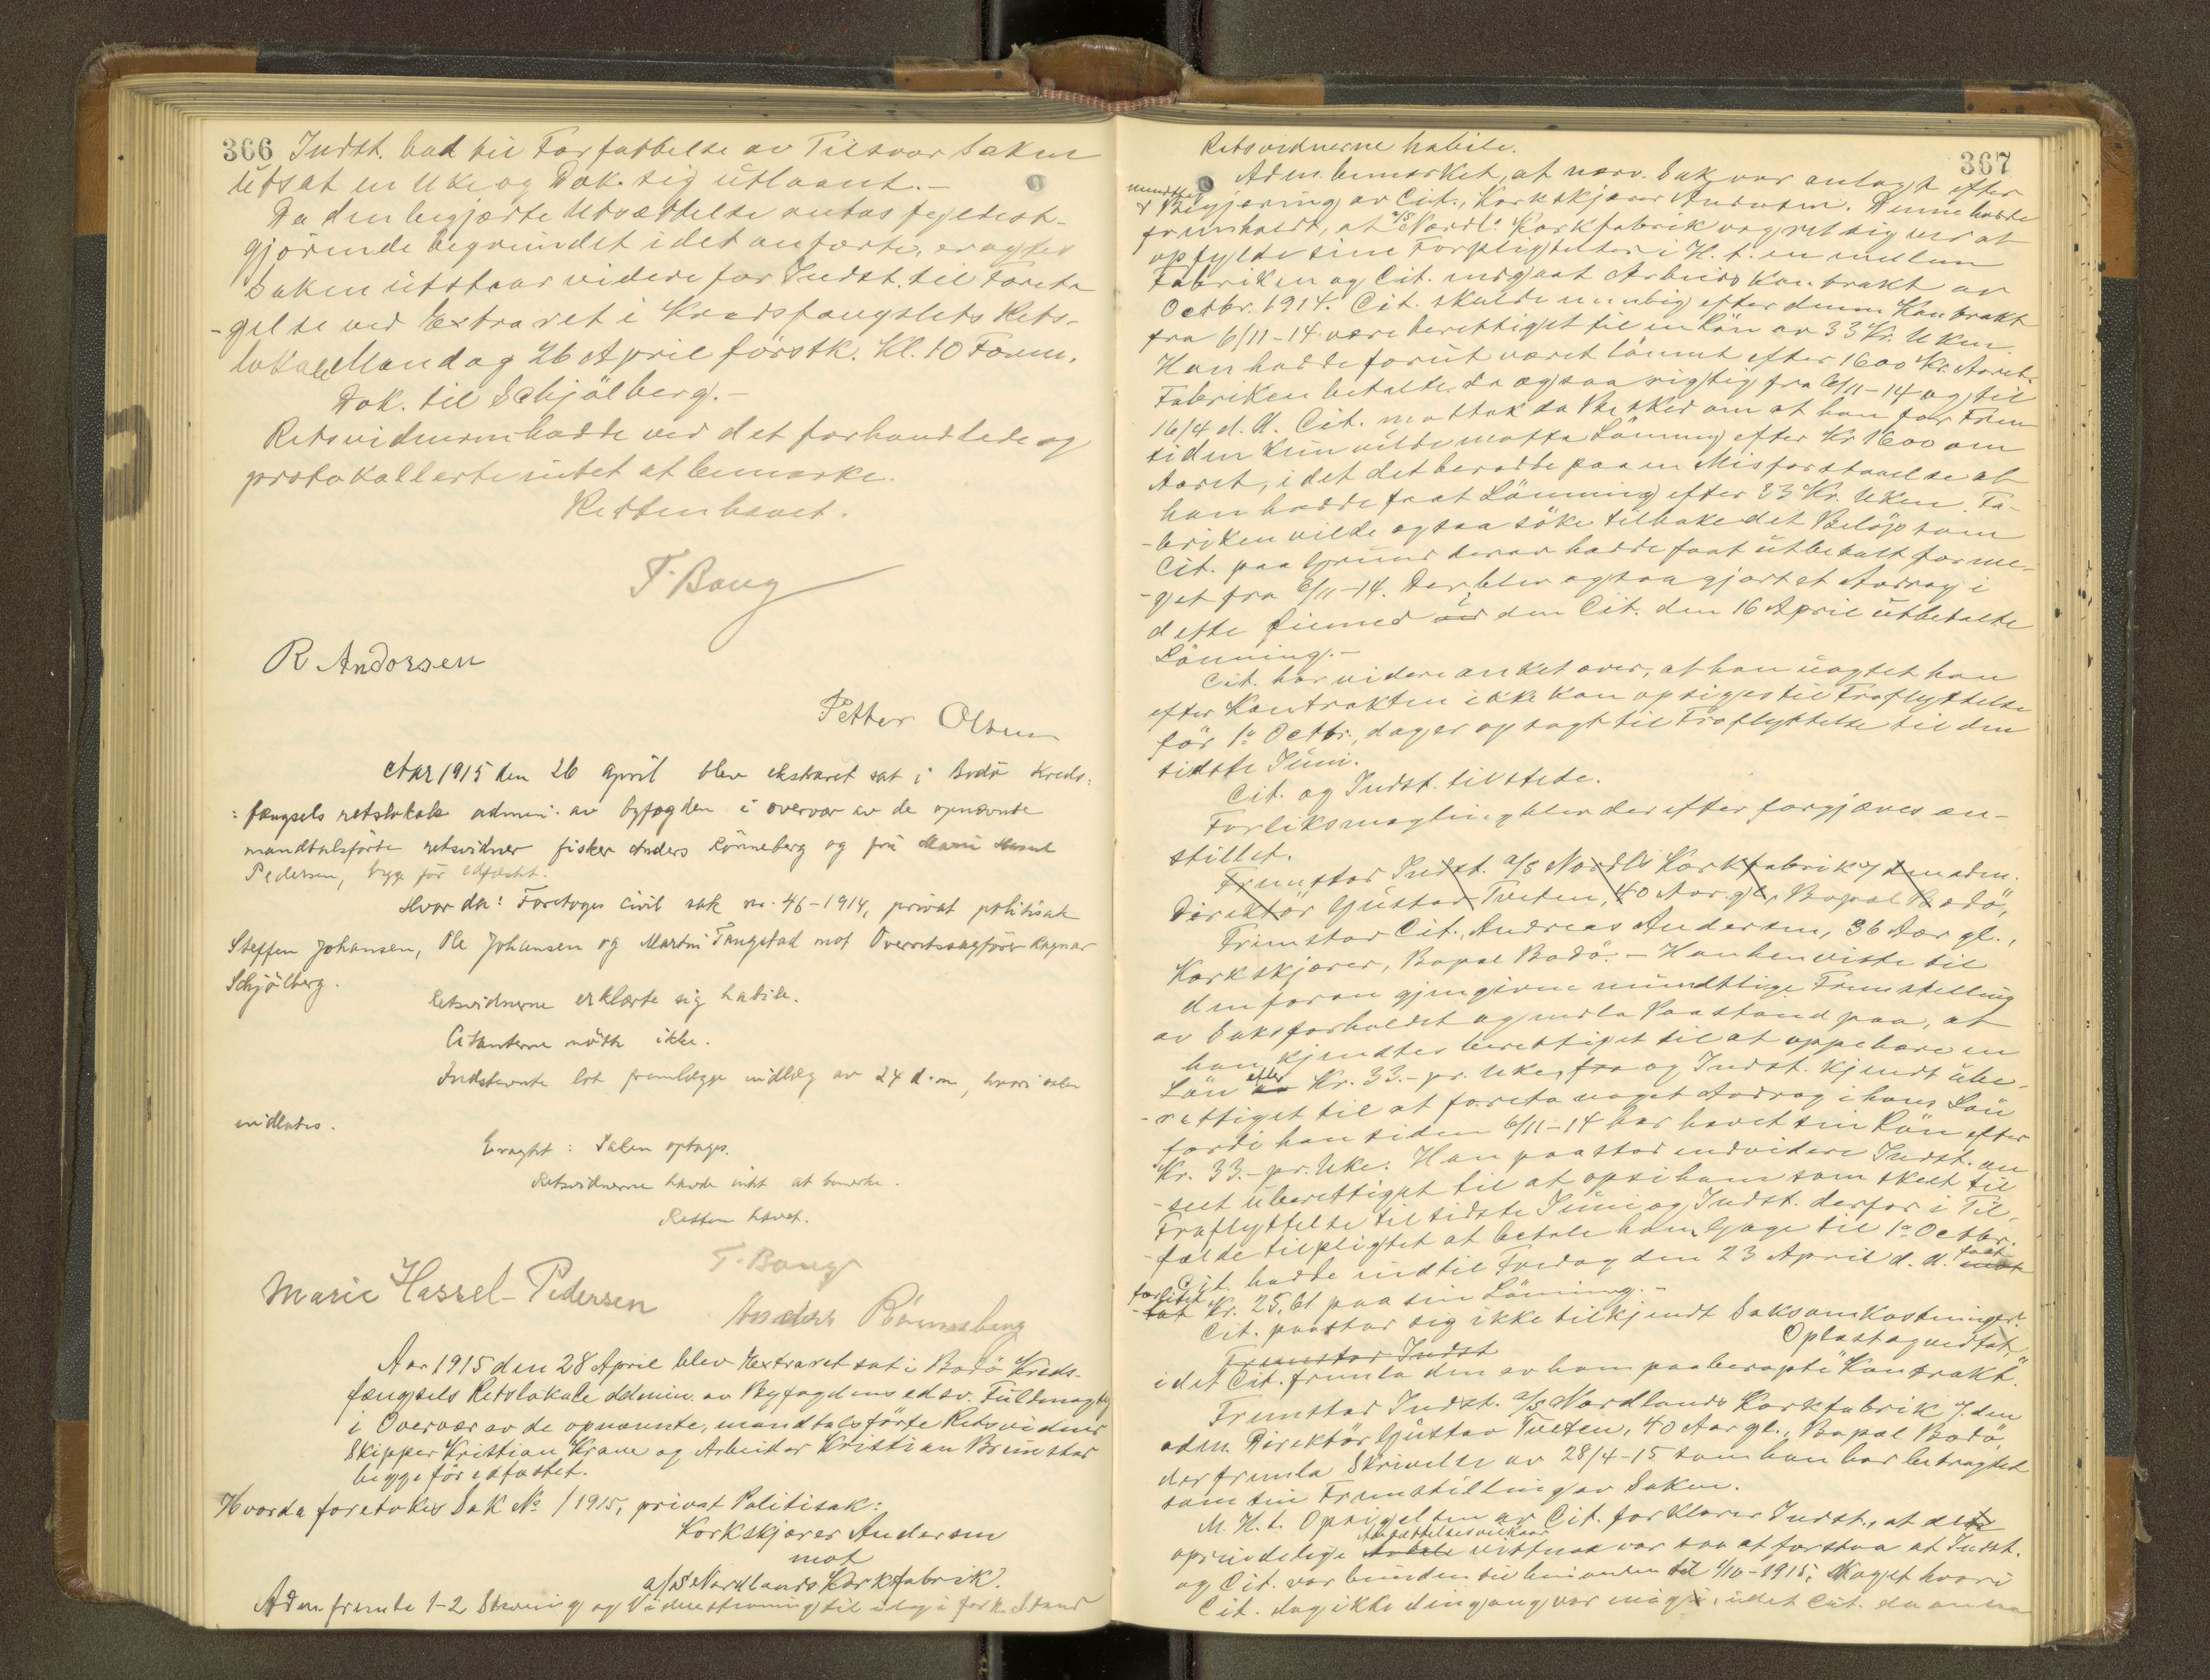 366 Indst. bad til Forfattelse av Tilsvar Saken
utsat en Uke og Dok. sig utlaant.-
Da den begjærte Utsættelse antas fyldest-
gjørende begrundet i det anførte, eragtes
Saken utstaar videre for Indst. til Foreta
-gelse ved Extraret i Kredsfængslets Rets-
lokale Mandag 26 April førstk. Kl. 10 Form.
Dok. til Schjølberg.-
Retsvidnerne hadde ved det forhandlede og
protokollerte intet at bemærke.
Retten hævet.
F. Baug
R Andorsen
Petter Olsen
Aar 1915 den 26 april blev ekstraret sat i Bodø Kreds:
:fængsels retslokale admin. av byfogden i overvær av de opnævnte
mandtalsførte retsvidner fisker Anders Rønneberg og fru Marie Hassel
Pedersen, begge før edfæstet.
Hvor da: Foretoges civil sak nr. 46-1914, privat politisak
Steffen Johansen, Ole Johansen og Martin Tangstad mot Overretssagfører Ragnar
Schjølberg.
Retsvidnerne erklærte sig habile.
Citanterne møtte ikke.
Indstevnte lot fremlægge indlæg av 24 d.m, hvori saken
indlates.
Eragtet: Saken optages.
Retsvidnerne havde intet at bemerke.
Retten hævet.
F. Baug
Marie Hassel-Pedersen
Anders Rønneberg
Aar 1915 den 28 April blev Extraret sat i Bodø Kreds-
fængsels Retslokale admin. av Byfogdens edsv. Fuldmægtig
i Overvær av de opnævnte, mandtalsførte Retsvidner
Skipper Kristian Krane og Arbeider Kristian Brunstad
begge før edfæstet.
Hvorda foretokes Sak No 1/1915, privat Politisak:
Korkskjærer Andersen
mot
a/s Nordlands Korkfabrik.
Adm. fremla 1-2 Stevning og Vidnestevning til idag i fork. Stand
367
Retsvidnerne habile.
Adm. bemerket, at nærv. Sak var anlagt efter
mundtlig
Begjæring av Cit., Korkskjærer Andersen. Denne hadde
fremholdt, at a/s Nordl. Korkfabrik vægret sig ved at
opfylde sine Forpligtelser i H. t. en mellem
Fabriken og Cit. indgaat Arbeids Kontrakt av
Octbr. 1914. Cit. skulde nemlig efter denne Kontrakt
fra 6/11-14 være berettiget til en Løn av 33 Kr. Uken.
Han hadde forut været lønnet efter 1600 Kr. Aaret.
Fabriken betalte da ogsaa rigtig fra 6/11-14 og til
16/4 d. A. Cit. mottok da Besked om at han for Frem
tiden kun vilde motta Lønning efter Kr 1600 om
Aaret, idet det berodde paa en Misforstaaelse at
han hadde faat Lønning efter 33 Kr. Uken. Fa-
-briken vilde ogsaa søke tilbake det Beløp som
Cit. paa Grund derav hadde faat utbetalt forme-
-get fra 6/11-14. Der blev ogsaa gjort et Avdrag i
dette Øiemed i den Cit. den 16 April utbetalte
Lønning.-
Cit. har videre anket over, at han uagtet han
efter Kontrakten ikke kan opsiges til Fraflyttelse
før 1e Octbr., dog er opsagt til Fraflyttelse til den
sidste Juni.
Cit. og Indst. tilstede.
Forliksmægling blev derefter forgjæves an-
stillet.
Fremstod Indst. a/s Nordls Korkfabrik v/ den adm.
Direktør Gustav Tveten, 40 Aar gl., Bopæl Bodø,
Fremstod Cit., Andreas Andersen, 36 Aar gl.,
Korkskjærer, Bopæl Bodø. - Han henviste til
den foran gjengivne mundtlige Fremstelling
av Saksforholdet og nedla Paastand paa, at
han kjendtes berettiget til at oppebære en
Løn efter Kr. 33.- pr. Uke, fra og Indst. kjendt ube-
-rettiget til at foreta noget Avdrag i hans Løn
fordi han siden 6/11-14 har hævet sin Løn efter
Kr. 33.- pr. Uke. Han paastod endvidere Indst. an
-seet uberettiget til at opsi ham som skeet til
Fraflyttelse til sidste Juni og Indst. derfor i Til-
-fælde tilpligtet at betale ham Gage til 1e Octbr.
Cit. hadde indtil Fredag den 23 April d. A. faat
for litet
Kr. 25,61 paa sin Lønning.-
Cit. paastod sig ikke tilkjendt Saksomkostninger.
Oplæst og vedtat,
Fremstod Indst
idet Cit. fremla den av ham paaberopte "Kontrakt".
Fremstod Indst. a/s Nordlands Korkfabrik v. den
adm. Direktør Gustav Tveten, 40 Aar gl., Bopæl Bodø,
der fremla Skrivelse av 28/4-15 som han har betragtet
som sin Fremstilling av Saken.
M. H. t. Opsigelsen av Cit. forklarer Indst., at de
Ansættelsesvilkaar
oprindelige vistnok var saa at forstaa at Indst.
og Cit. var bunden til hinanden til 1/10-1915, Noget hvori
Cit. dog ikke dengang var enig i, idet Cit. da ansaa